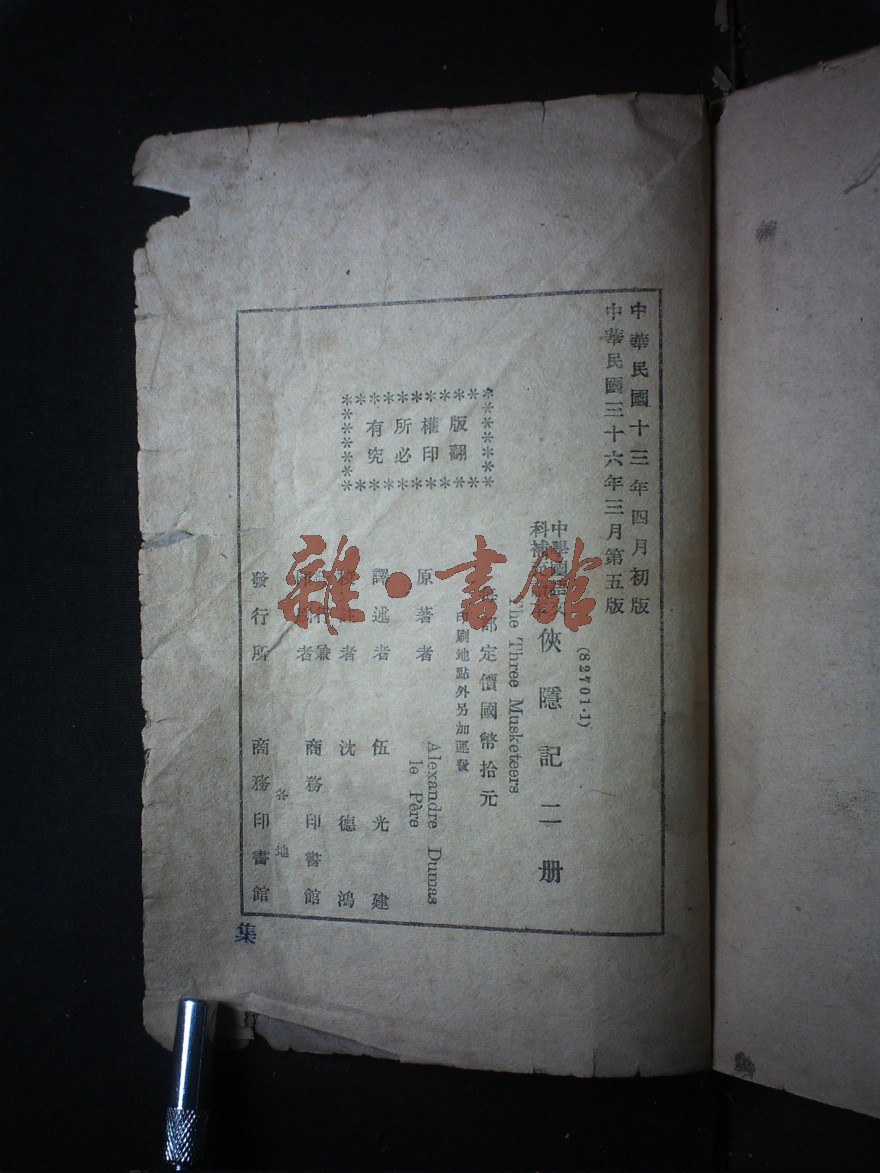 中華民國十三年四月初版
中華民國三十六年三月第五版
(82701·1)
俠隱記二册
The Three Musketeers
定價國幣拾元
印刷地點外另加運費
版權所有
翻印必究
原著者 Alexandre Dumas
le Père
譯述者 伍光建
者 沈德鴻
者 商務印書館
各地
發行所 商務印書館
集
雜·書館